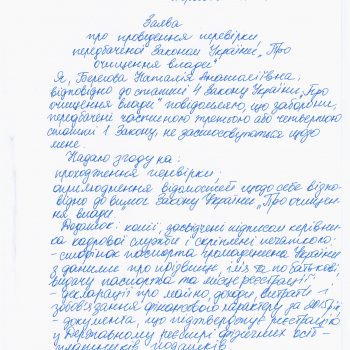 Заява
про проведення перевірки,
передбаченої Законом України „Про
очищення влади"
Я, Берегова Наталія Анатоліївна,
відповідно до статті 4 Закону України „Про
очищення влади" повідомляю, що заборони,
передбачені частиною третьою або четвертою
статті 1 Закону, не застосовуються щодо
мене.
Надаю згоду на:
проходження перевірки;
оприлюднення відомостей щодо себе відпо-
відно до вимог Закону України „Про очищен-
ня влади".
Додаток: копії, засвідчені підписом керівни-
ка кадрової служби і скріплені печаткою:
- сторінок паспорта громадянина України
з даними про прізвище, ім'я та по батькові,
видачу паспорта та місце реєстрації;
- декларації про майно, доходи, витрати і
зобов'язання фінансового характеру за
- документа, що підтверджує реєстрацію
у Державному реєстрі фізичних осіб -
платників податків.